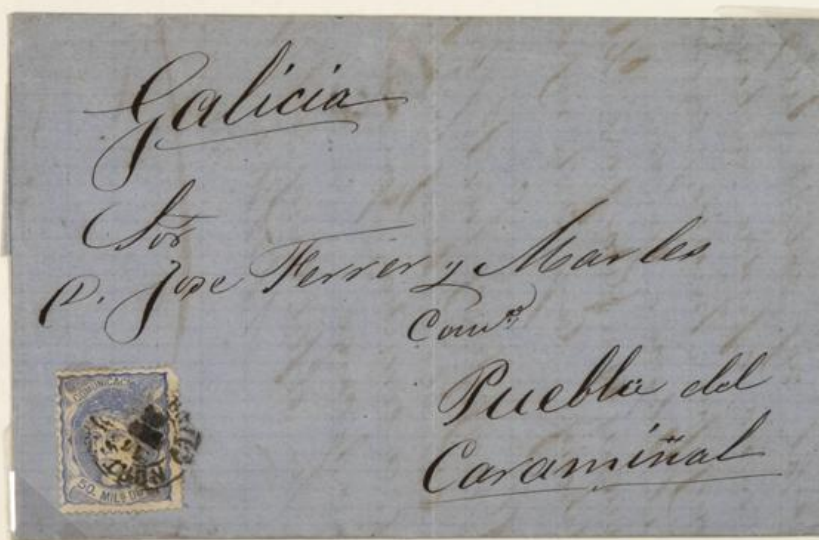 Galicia
Sor
D. Jose Ferrer y Marles
Puebla del
Caramiñal
COMUNICAC
50. MILS D